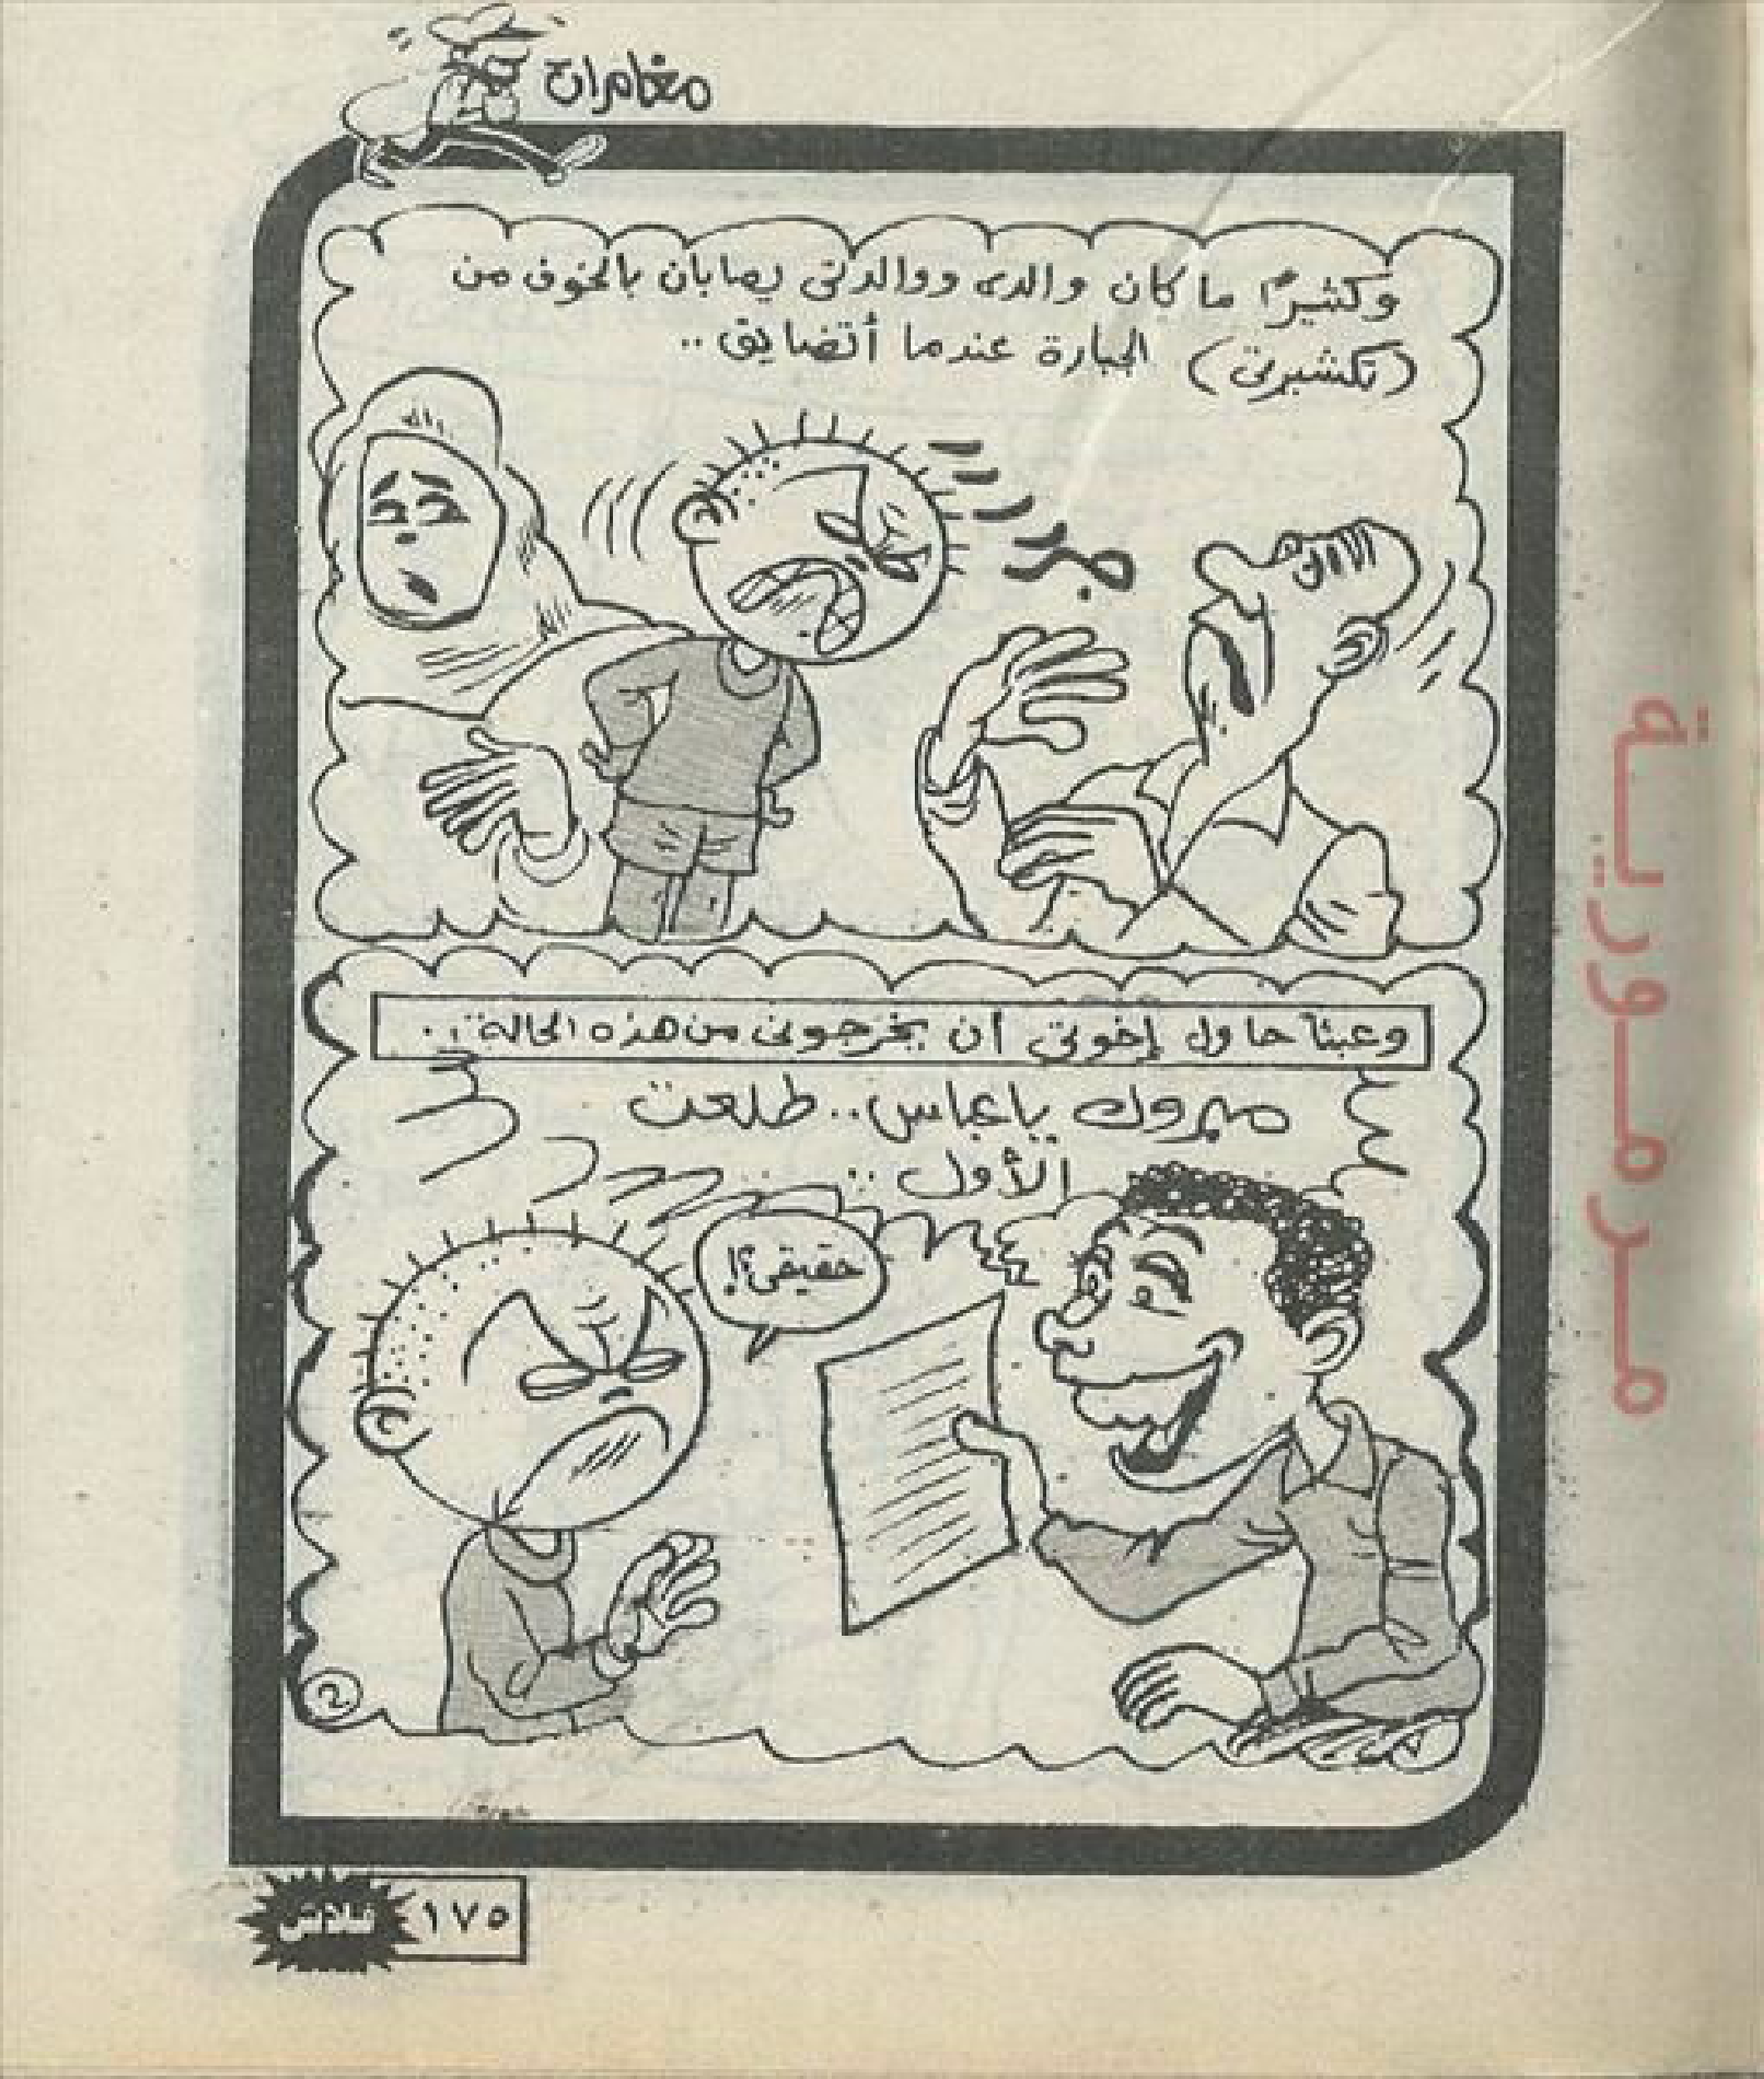 مغامرات
وكثيرًا ما كان والدى ووالدتى يصابان بالخوف من
(تكشيرتى) الجبارة عندما أتضايق..
وعبثًا حاول إخوتى أن يخرجونى من هذه الحالة..
مبروك يا عباس.. طلعت
الأول..
حقيقى؟!
2
١٧٥
فلاش
مرمورية